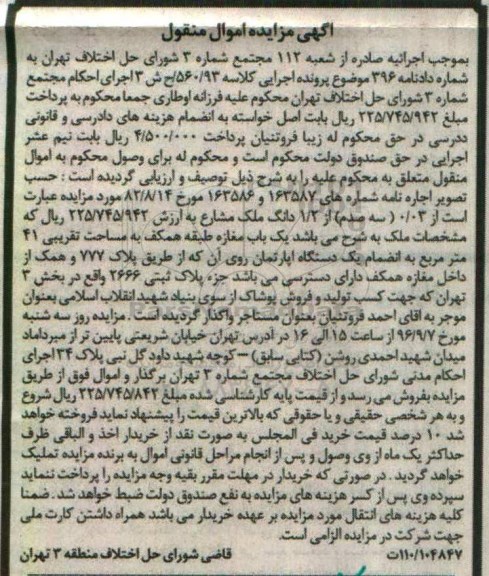 آگهی مزایده اموال منقول
بموجب اجرائیه صادره از شعبه ۱۱۲ مجتمع شماره ۳ شورای حل اختلاف تهران به
شماره دادنامه ۳۹۶ موضوع پرونده اجرایی کلاسه ۵۶۰/۹۳/ح ش ۳ اجرای احکام مجتمع
شماره ۳ شورای حل اختلاف تهران محکوم علیه فرزانه اوطاری جمعا محکوم به پرداخت
مبلغ ۲۲۵/۷۴۵/۹۴۲ ریال بابت اصل خواسته به انضمام هزینه های دادرسی و قانونی
ددرسی در حق محکوم له زیبا فروتنیان پرداخت ۴/۵۰۰/۰۰۰ ریال بابت نیم عشر
اجرایی در حق صندوق دولت محکوم است و محکوم له برای وصول محکوم به اموال
منقول متعلق به محکوم علیه را به شرح ذیل توصیف و ارزیابی گردیده است : حسب
تصویر اجاره نامه شماره های ۱۶۳۵۸۷ و ۱۶۳۵۸۶ مورخ ۸۲/۸/۱۴ مورد مزایده عبارت
است از ۰/۰۳ ( سه صدم) از ۱/۲ دانگ ملک مشارع به ارزش ۲۲۵/۷۴۵/۹۴۲ ریال که
مشخصات ملک به شرح می باشد یک باب مغازه طبقه همکف به مساحت تقریبی ۴۱
متر مربع به انضمام یک دستگاه اپارتمان روی آن که از طریق پلاک ۷۷۷ و همک از
داخل مغازه همکف دارای دسترسی می باشد جزء پلاک ثبتی ۲۶۶۶ واقع در بخش ۳
تهران که جهت کسب تولید و فروش پوشاک از سوی بنیاد شهید انقلاب اسلامی بعنوان
موجر به اقای احمد فروتنیان بعنوان مستاجر واگذار گردیده است . مزایده روز سه شنبه
مورخ ۹۶/۹/۷ از ساعت ۱۵ الی ۱۶ در آدرس تهران خیابان شریعتی پایین تر از میرداماد
میدان شهید احمدی روشن (کتابی سابق) – کوچه شهید داود گل نبی پلاک ۳۴ اجرای
احکام مدنی شورای حل اختلاف مجتمع شماره ۳ تهران برگذار و اموال فوق از طریق
مزایده بفروش می رسد و از قیمت پایه کارشناسی شده مبلغ ۲۲۵/۷۴۵/۸۴۲ ریال شروع
و به هر شخصی حقیقی و یا حقوقی که بالاترین قیمت را پیشنهاد نماید فروخته خواهد
شد ۱۰ درصد قیمت خرید فی المجلس به صورت نقد از خریدار اخذ و الباقی ظرف
حداکثر یک ماه از وی وصول و پس از انجام مراحل قانونی اموال به برنده مزایده تملیک
خواهد گردید . در صورتی که خریدار در مهلت مقرر بقیه وجه مزایده را پرداخت ننماید
سپرده وی پس از کسر هزینه های مزایده به نفع صندوق دولت ضبط خواهد شد . ضمنا
کلیه هزینه های انتقال مورد مزایده بر عهده خریدار می باشد همراه داشتن کارت ملی
جهت شرکت در مزایده الزامی است.
۱۱۰/۱۰۴۸۴۷ت قاضی شورای حل اختلاف منطقه ۳ تهران